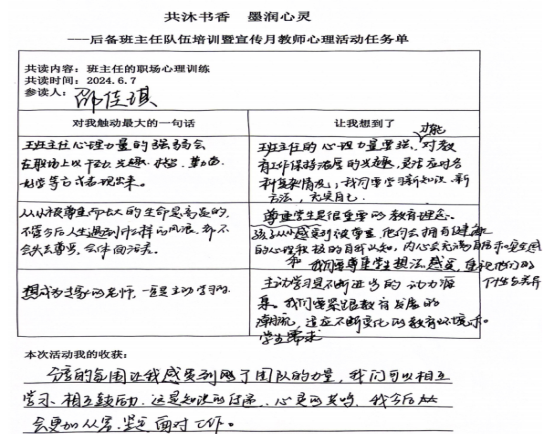 共沐书香 墨润心灵
---后备班主任队伍培训暨宣传月教师心理活动任务单
共读内容：班主任的职场心理训练
共读时间：2024.6.7
参读人：邵佳琪
对我触动最大的一句话
让我想到了
班主任心理力量的强弱会
在职场上以干劲、兴趣、
等方式表现出来。
班主任的心理力量要强，才能对教
育工作保持浓厚的兴趣，灵活应对各
种复杂情况，我们要学习新知识、新
方法，充实自己。
从小被尊重而长大的生命是高贵的，
不管今后人生遇到什么样的风浪，都不
会失去尊严，会体面活着。
尊重学生是很重要的教育理念。
孩子从小感受到被尊重，他们会拥有健康
的心理和积极的自我认知，内心会充满自信和安全感
我们要尊重学生想法感受，重视他们的
个性与差异
想成为优秀的老师，一定是主动学习的
主动学习是不断进步的动力源
泉。我们要紧跟教育发展的
潮流，适应不断变化的教育环境
学生需求
本次活动我的收获：
分享的氛围让我感受到了团队的力量，我们可以相互
学习、相互鼓励，这是知识的传递，心灵的共鸣，我今后
会更加从容、坚定面对工作。